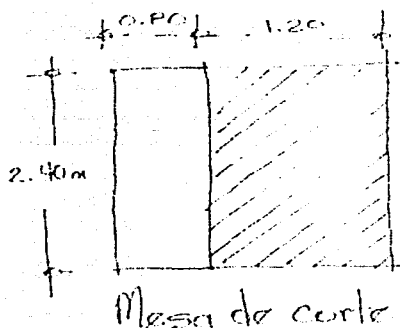 0.80 1.20
2.40m
Mesa de corte